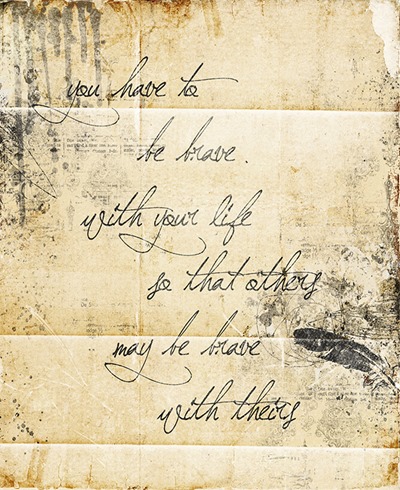 you have to
be brave.
with your life
so that others
may be brave
with theirs